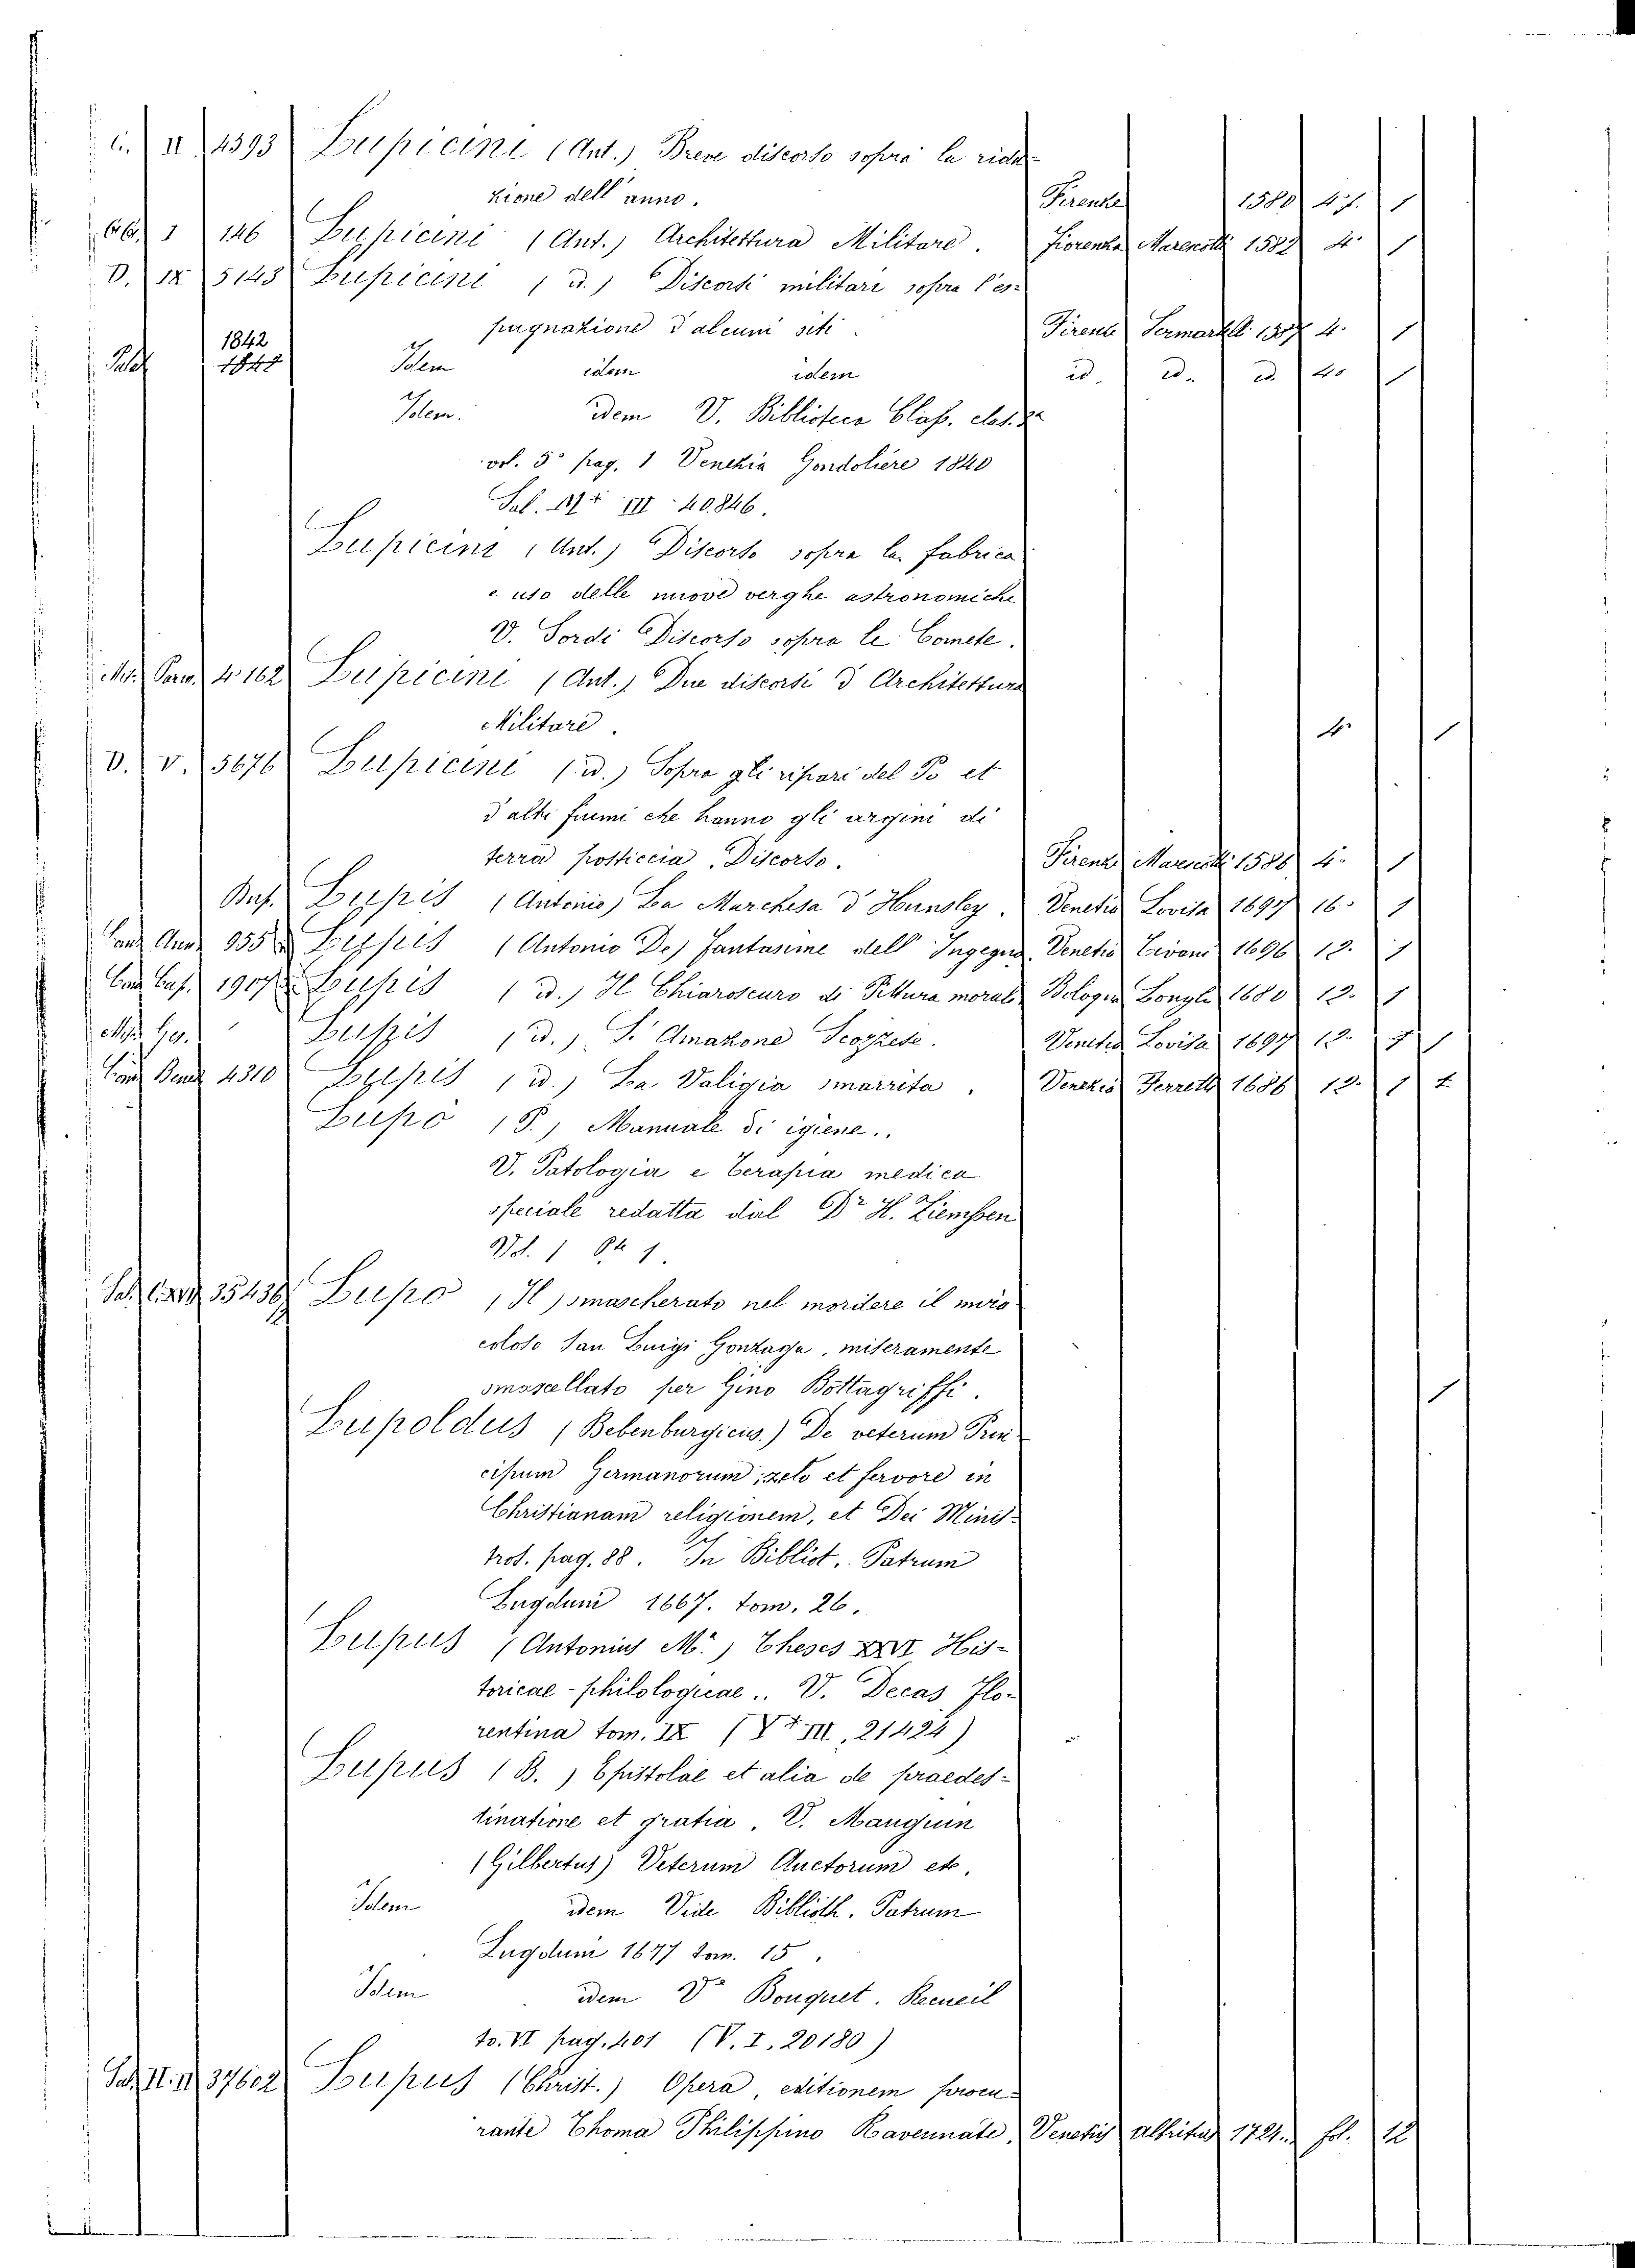 C. II 4593 Lupicini (Ant.) Breve discorso sopra la ridu-
zione dell'anno. Firenze 1580 4.f. 1
1 146 Lupicini (Ant.) Architettura Militare. Fiorenza Marescotti 1582 4. 1
D. IX 5143 Lupicini (id.) Discorsi militari sopra l'es-
pugnazione d'alcuni siti. Firenze Sermartelli 1587 4. 1
Palat. 1842 1842 Idem idem idem id. id. id. 4. 1
Idem. idem V. Biblioteca Class. clas. 
vol. 5° pag. 1 Venezia Gondoliere 1840
Sal. III 40846.
Lupicini (Ant.) Discorso sopra la fabrica
e uso delle nuove verghe astronomiche
V. Sordi Discorso sopra le Comete.
Parm. 4162 Lupicini (Ant.) Due discorsi d'Architettura
Militare. 4. 1
D. V. 5676 Lupicini (id.) Sopra gli ripari del Po et
d'altri fiumi che hanno gli argini di
terra posticcia. Discorso. Firenze Marescotti 1586 4. 1
Lupis (Antonio) La Marchesa d'Hunsley. Venetia Lovisa 1697 16. 1
955 Lupis (Antonio De) Fantasime dell'Ingegno. Venetia Tivani 1696 12. 1
1907 Lupis (id.) Il Chiaroscuro di Pittura morale Bologna Longhi 1680 12. 1
Lupis (id.) L'Amazone Scozzese. Venetia Lovisa 1697 12. 1
4310 Lupis (id.) La Valigia smarrita. Venezia Ferretti 1686 12. 1
Lupo (P.) Manuale di igiene.
V. Patologia e Terapia medica
speciale redatta dal Dr H. Ziemssen
Vol. 1 Pte 1.
35436 Lupo (Il) smascherato nel mordere il mira-
coloso San Luigi Gonzaga, miseramente
smascellato per Gino Bottagriffi. 1
Lupoldus (Bebenburgicus.) De veterum Prin-
cipum Germanorum zelo et fervore in
Christianam religionem, et Dei Minis-
tros. pag. 88. In Bibliot. Patrum
Lugduni 1667. tom. 26.
Lupus (Antonius M.a) Theses XXVI His-
toricae-philologicae. V. Decas Flo-
rentina tom. IX (V+ III, 21424)
Lupus (B.) Epistolae et alia de praedes-
tinatione et gratia, V. Manguin
(Gilbertus) Veterum Auctorum etc.
Idem idem Vide Biblioth. Patrum
Lugduni 1677 tom. 15.
Idem idem V.e Bouquet. Recueil
to. VI pag. 401 (V. I. 20180)
37602 Lupus (Christ.) Opera, editionem procu-
rante Thoma Philippino Ravennate, Venetiis Albritius 1724. fol. 12